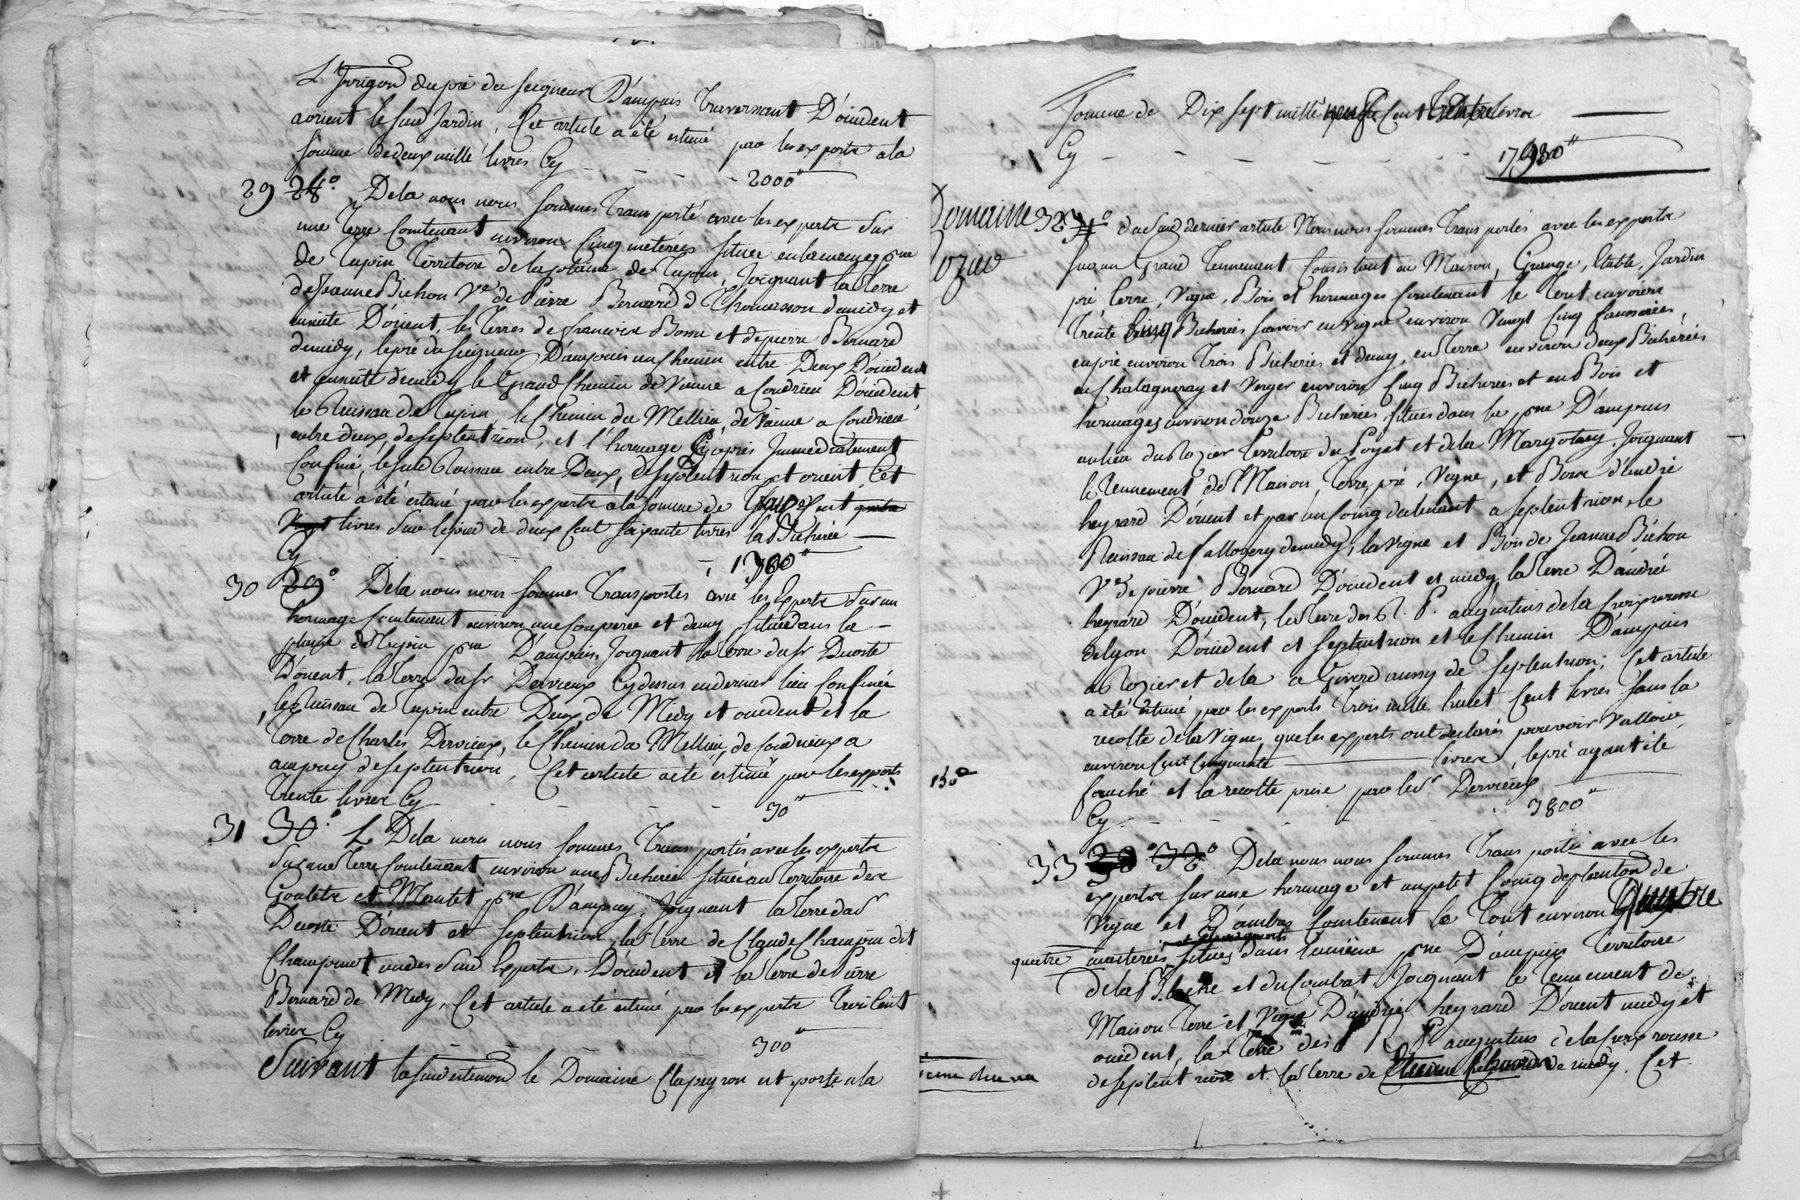 du pré du Seigneur D'ampuis traversant D'occident
a orient le susd Jardin, Cet article a été estimé par les experts a la
somme de deux mille livres Cy - - - - 2000"
29 28° De la nous nous sommes transporté avec les experts sur
une Terre Contenant environ Cinq metérées située en la meme psse
de Tupin Territoire de la plaine de Tupin, Joignant la Terre
de Jeanne Bichon Ve de Pierre Bernard d Thomasson de midy et
ensuite D'orient, les Terres de francois Bonne et de pierre Bernard
de midy, le pré du Seigneur D'ampuis un chemin entre Deux D'occident
et ensuite de midy le Grand Chemin de Vienne a Condrieu D'occident
le Ruisseau de Tupin, le Chemin du Mellieu, de Vienne a Condrieu
entre deux, de septentrion, et l'hermage Cy après Immediatement
Confiné, le susd Ruisseau entre Deux, de septentrion et orient, Cet
article a été estimé par les experts a la somme de Cent
livres sur le pied de deux Cent soixante livres la Bicherée
Cy - 1300"
30 29° De la nous nous sommes transportés avec les experts sur un
hermage Contenant environ une Couperée et demy située dans la
plaine de Tupin psse D'ampuis, Joignant la terre du Sr Decoste
D'orient, la terre du Sr Dervieux Cy dessus en dernier lieu Confinée
le Ruisseau de Tupin entre Deux, de Midy et occident et la
Terre de Charles Dervieux, le Chemin du Mellieu, de Condrieux a
ampuy de septentrion, Cet article a été estimé par les experts
Trente livres Cy - - - - 30"
31 30° De la nous nous sommes transportés avec les experts
sur une Terre Contenant environ une Bicherée située au Territoire de
Goutete et Montet psse D'ampuy, Joignant la terre du Sr
Decoste D'orient et septentrion, la Terre de Claude Champin dit
Champinot un des susd Experts, D'occident et la Terre de Pierre
Bernard de Midy, Cet article a été estimé par les experts Trois Cent
livres Cy - - 300"
Suivant la susd estimation le Domaine Clapeyron est porté a la
Somme de Dix sept mille neuf Cent livres
Cy - - - - - -
Domaine 32 du susd dernier article Nous nous sommes transportés avec les experts
Rozier
sur un Grand Tennement Consistant en Maison, Grange, Etable, Jardin
pré terre, Vigne, Bois et hermages Contenant le tout environ
Trente Cinq Bicherées savoir en vigne environ Vingt Cinq fausserées,
en pré environ Trois Bicherées et demy, en Terre environ deux Bicherées
en Chatagneray et Verger environ Cinq Bicherées et en Bois et
hermages environ douze Bicherées, situés dans la psse D'ampuis
au lieu du Rozier Territoire du Poyet et de la Margotney, Joignant
le Tennement de Maison, Terre, pré, Vigne, et Bois d'andré
heyrard D'orient et par un Coing du levant a septentrion, le
Ruisseau de de midy, la vigne et Bois de Jeanne Bichon
Ve de pierre Bernard D'occident et midy, la terre D'andré
heyrard D'occident, les terre des R. P. augustins de la Croix rousse
de lyon D'occident et septentrion et le Chemin D'ampuis
a Rozier et de la a Givord aussy de septentrion; Cet article
a été estimé par les experts Trois mille huit Cent livres sans la
recolte de la Vigne, que les experts ont declarés pouvoir valloir
150" environ Cent Cinquante livres, le pré ayant été
fauché et la recolte prise par led Sr Dervieux
Cy - - - 3800"
33 32° De la nous nous sommes transportés avec les
experts sur une hermage et un petit Coing de planton de
Vigne et Contenant le tout environ quatre
quatre meterées situés dans la meme psse D'ampuis Territoire
de la et du Combat Joignant le Tennement de
Maison Terre et Vigne D'andré heyrard D'orient midy et
occident, la Terre des R. P. augustins de la Croix rousse
de septentrion et la terre de de midy. Cet